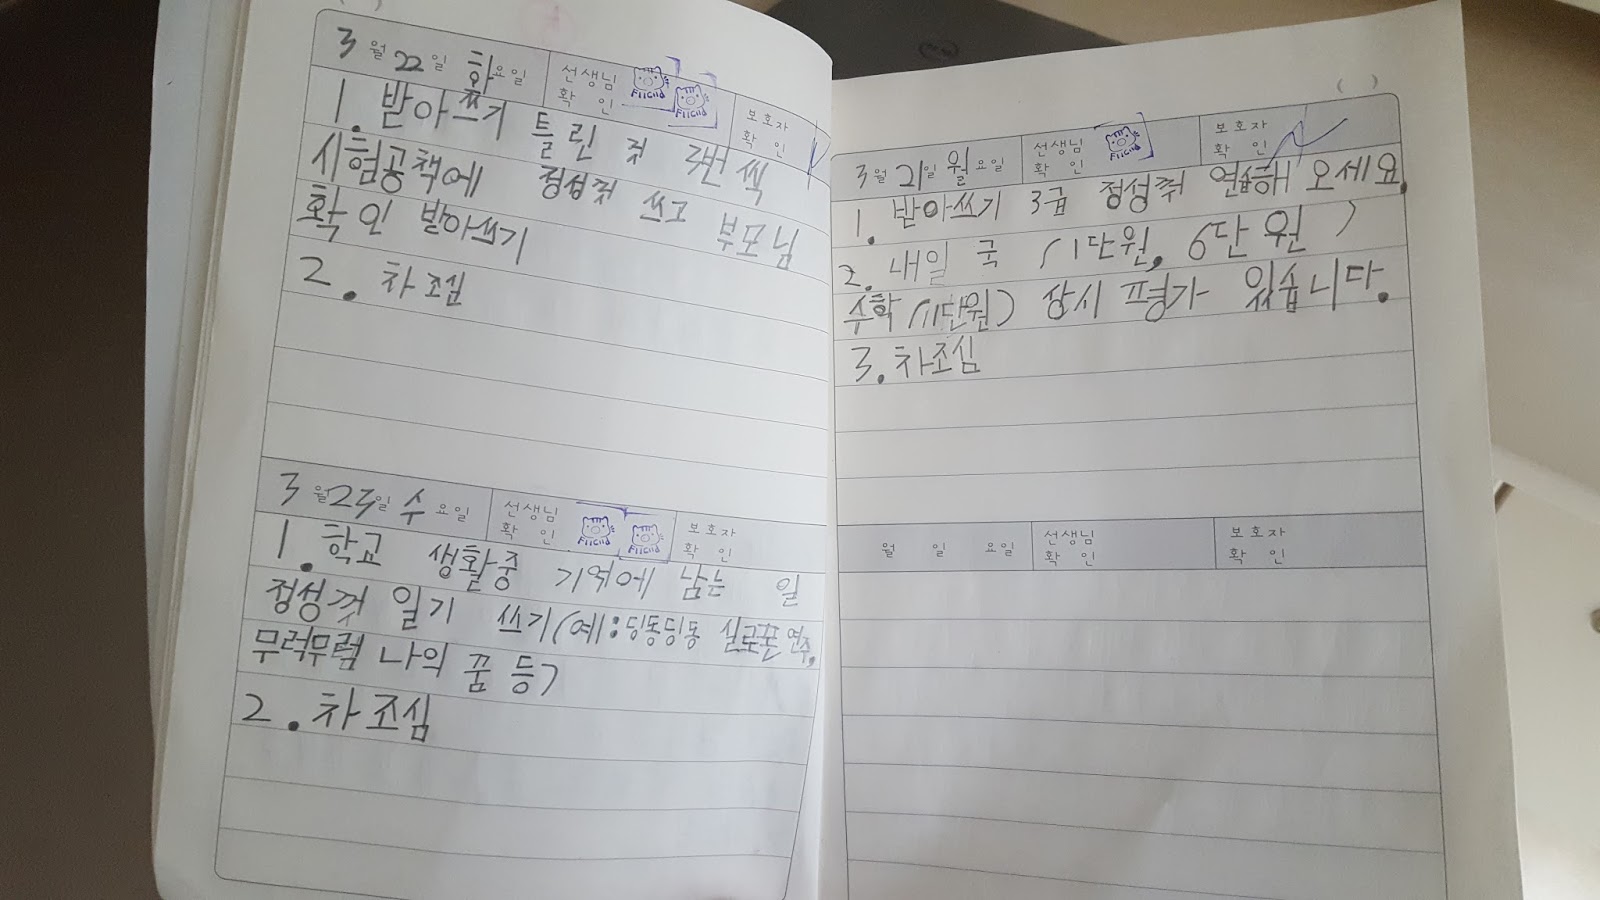 3월 22일 화요일 선생님 확인 보호자 확인
1. 받아쓰기 틀린 것 2번 씩
시험공책에 정성껏 쓰고 부모님
확인 받아쓰기
2. 차조심
3월 23일 수요일 선생님 확인 보호자 확인
1. 학교 생활중 기억에 남는 일
정성껏 일기 쓰기(예:딩동딩동 실로폰 연주,
무럭무럭 나의 꿈 등)
2. 차조심
( )
3월 21일 월요일 선생님 확인 보호자 확인
1. 받아쓰기 3급 정성껏 연습해 오세요.
2. 내일 국 (1단원, 9단원)
수학(1단원) 상시 평가 있습니다.
3. 차조심
월 일 요일 선생님 확인 보호자 확인